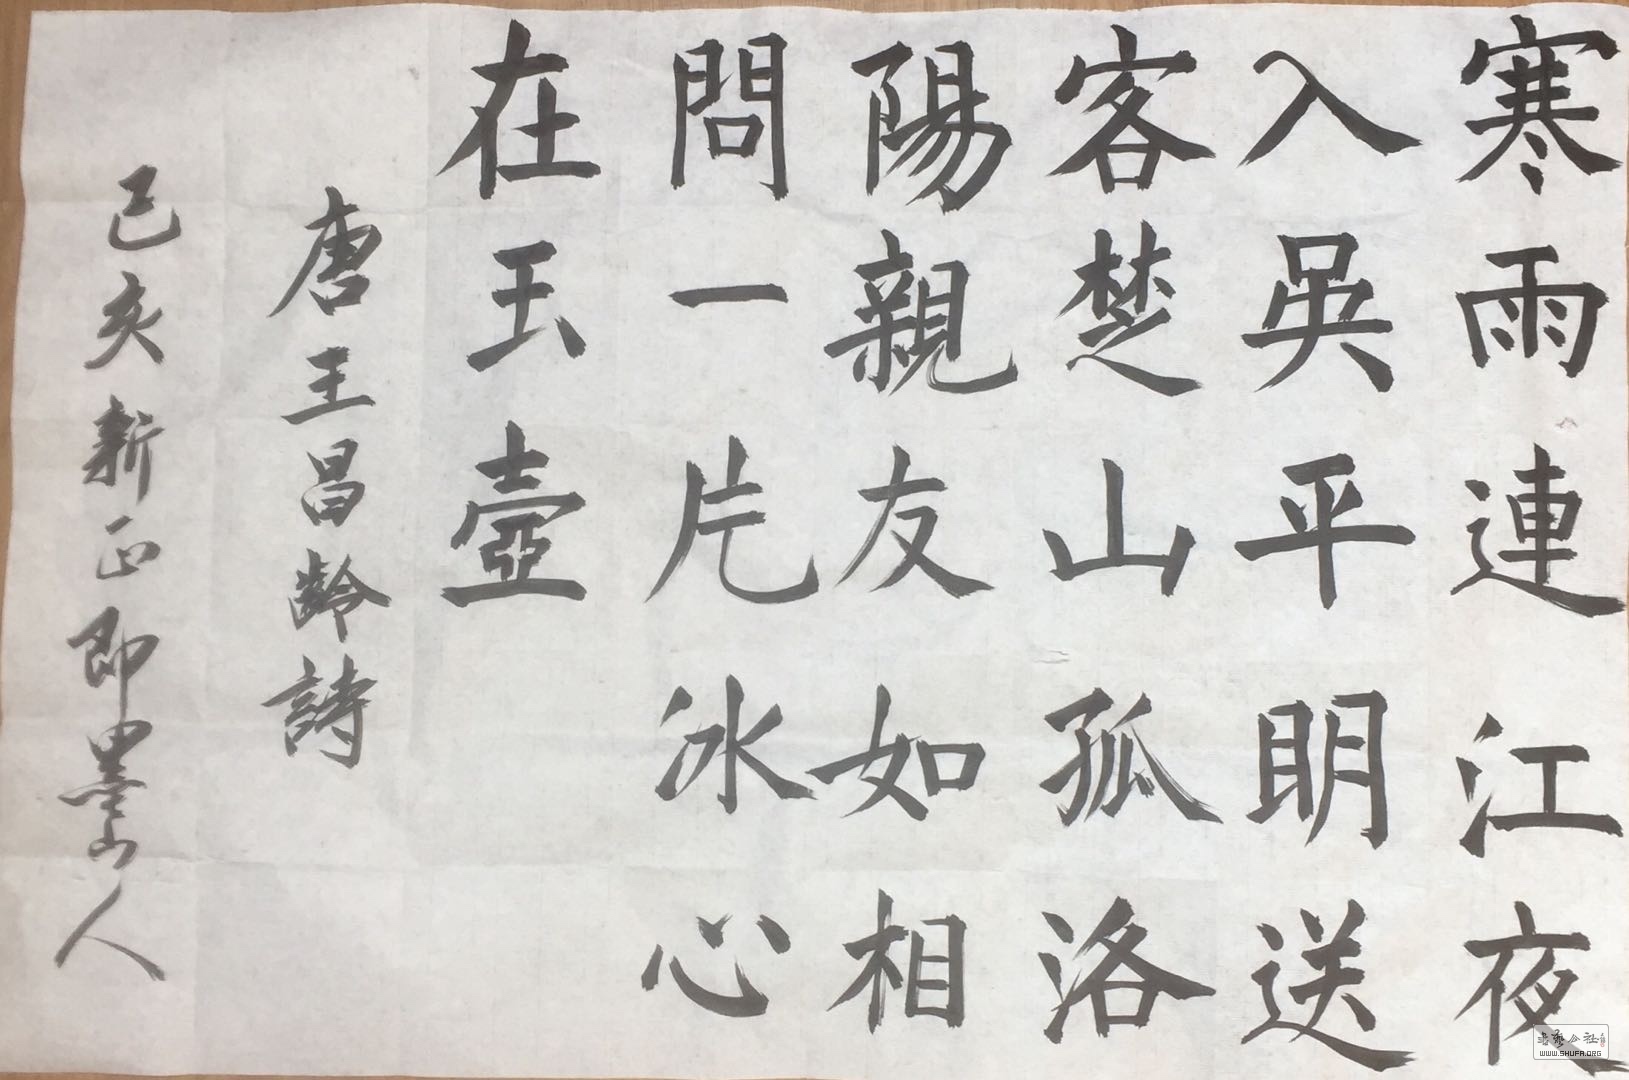 寒雨連江夜
入吳平明送
客楚山孤洛
陽親友如相
問一片冰心
在玉壺
唐王昌齡詩
己亥新正即墨山人
WWW.SHUFA.ORG